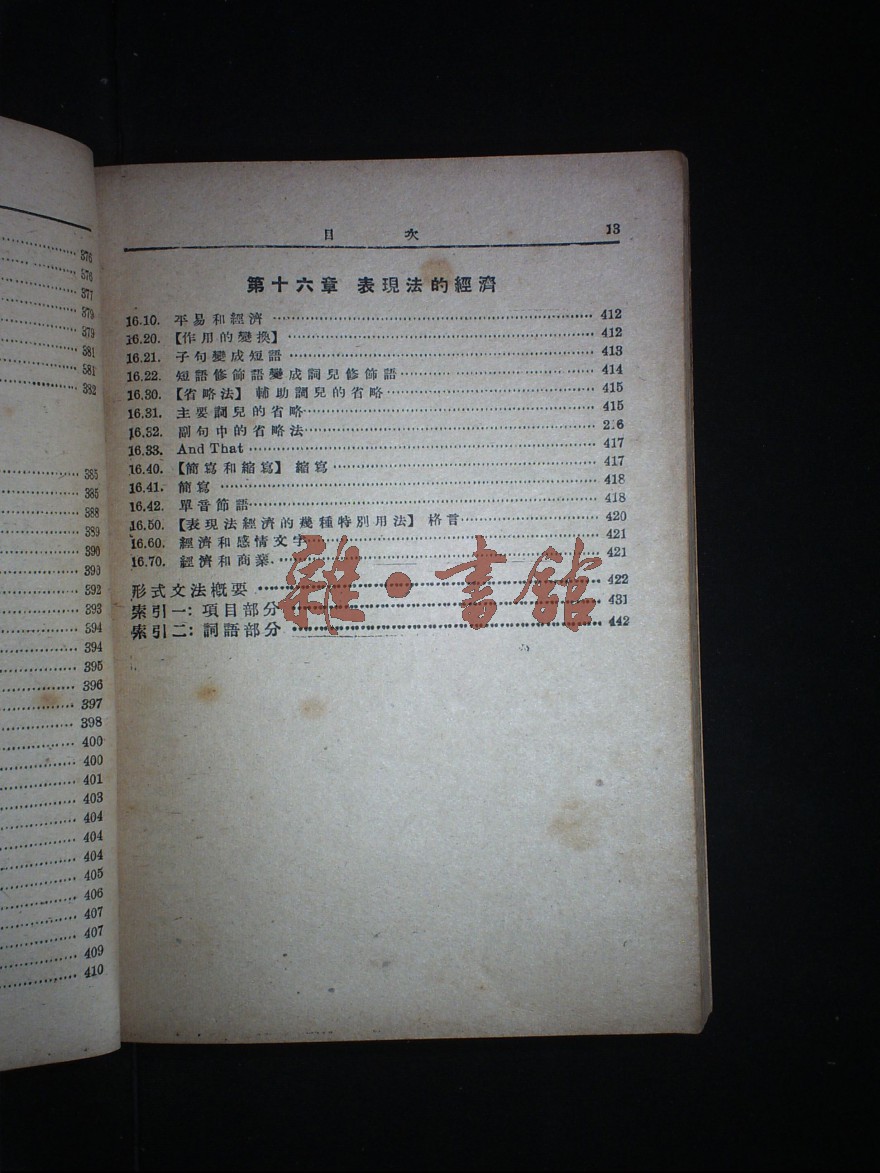 376
376
377
379
379
381
381
382
385
385
388
389
390
390
392
393
394
394
395
396
397
398
400
400
401
403
404
404
404
405
406
407
407
409
410
目 次 13
第十六章 表現法的經濟
16.10. 平易和經濟 412
16.20. 【作用的變換】 412
16.21. 子句變成短語 413
16.22. 短語修飾語變成詞兒修飾語 414
16.30. 【省略法】 輔助詞兒的省略 415
16.31. 主要詞兒的省略 415
16.32. 副句中的省略法 2.6
16.33. And That 417
16.40. 【簡寫和縮寫】 縮寫 417
16.41. 簡寫 418
16.42. 單音節語 418
16.50. 【表現法經濟的幾種特別用法】 格言 420
16.60. 經濟和感情文字 421
16.70. 經濟和商業 421
形式文法概要 422
索引一: 項目部分 431
索引二: 詞語部分 442
雜·書館